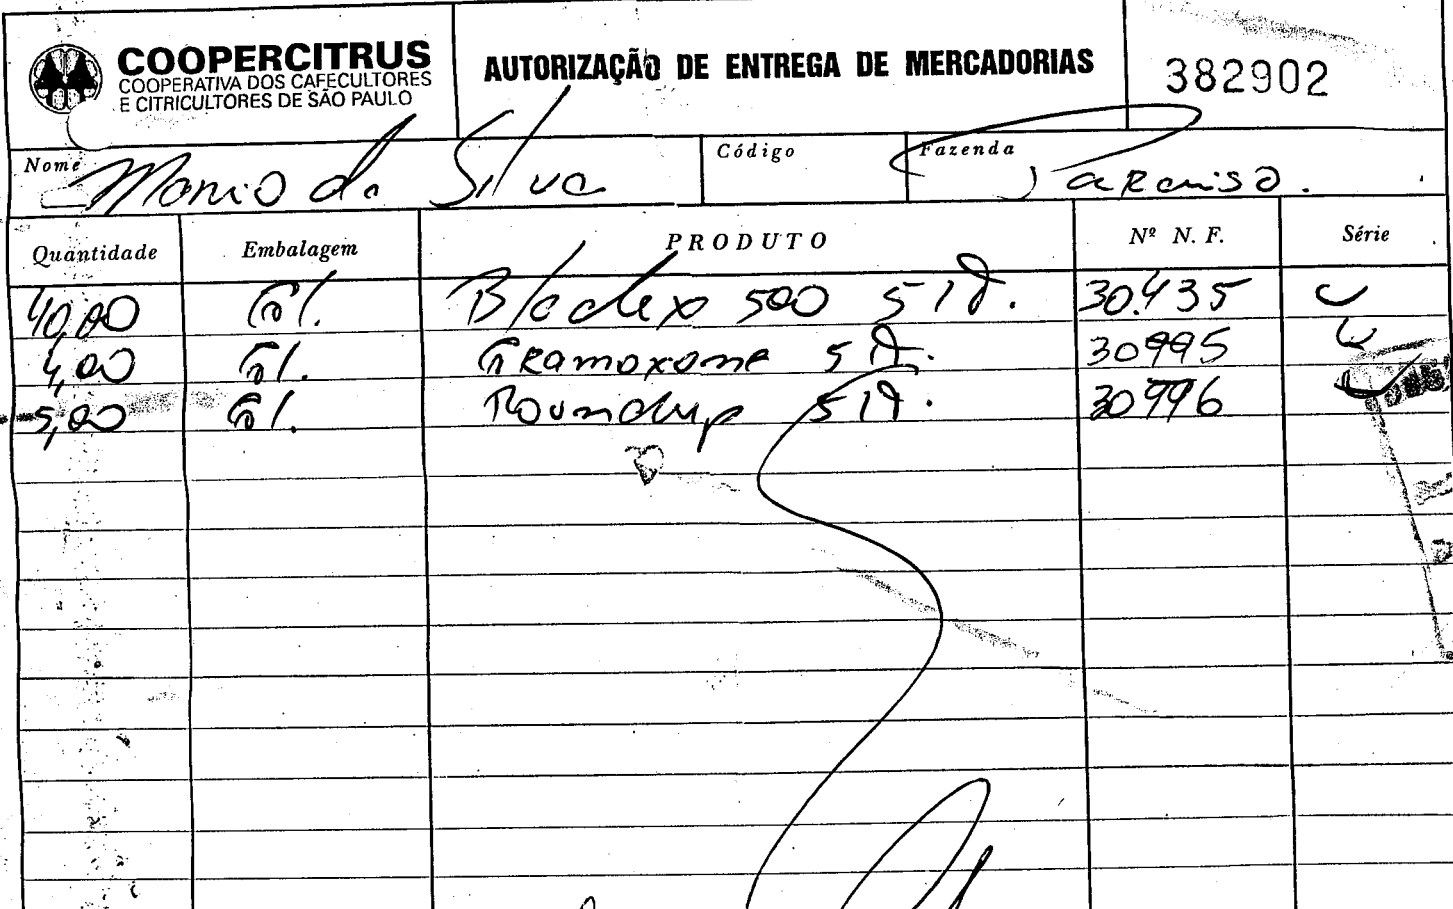 COOPERCITRUS
COOPERATIVA DOS CAFECULTORES
E CITRICULTORES DE SÃO PAULO
AUTORIZAÇÃO DE ENTREGA DE MERCADORIAS
382902
Nome Mario da Silva Código Fazenda Paraiso.
Quantidade Embalagem PRODUTO Nº N. F. Série
40,00 Gl. Bladex 500 5 lt. 30.435 U
4,00 Gl. Gramoxone 5 lt. 30995 U
5,00 Gl. Roundup 5 lt. 30996 U